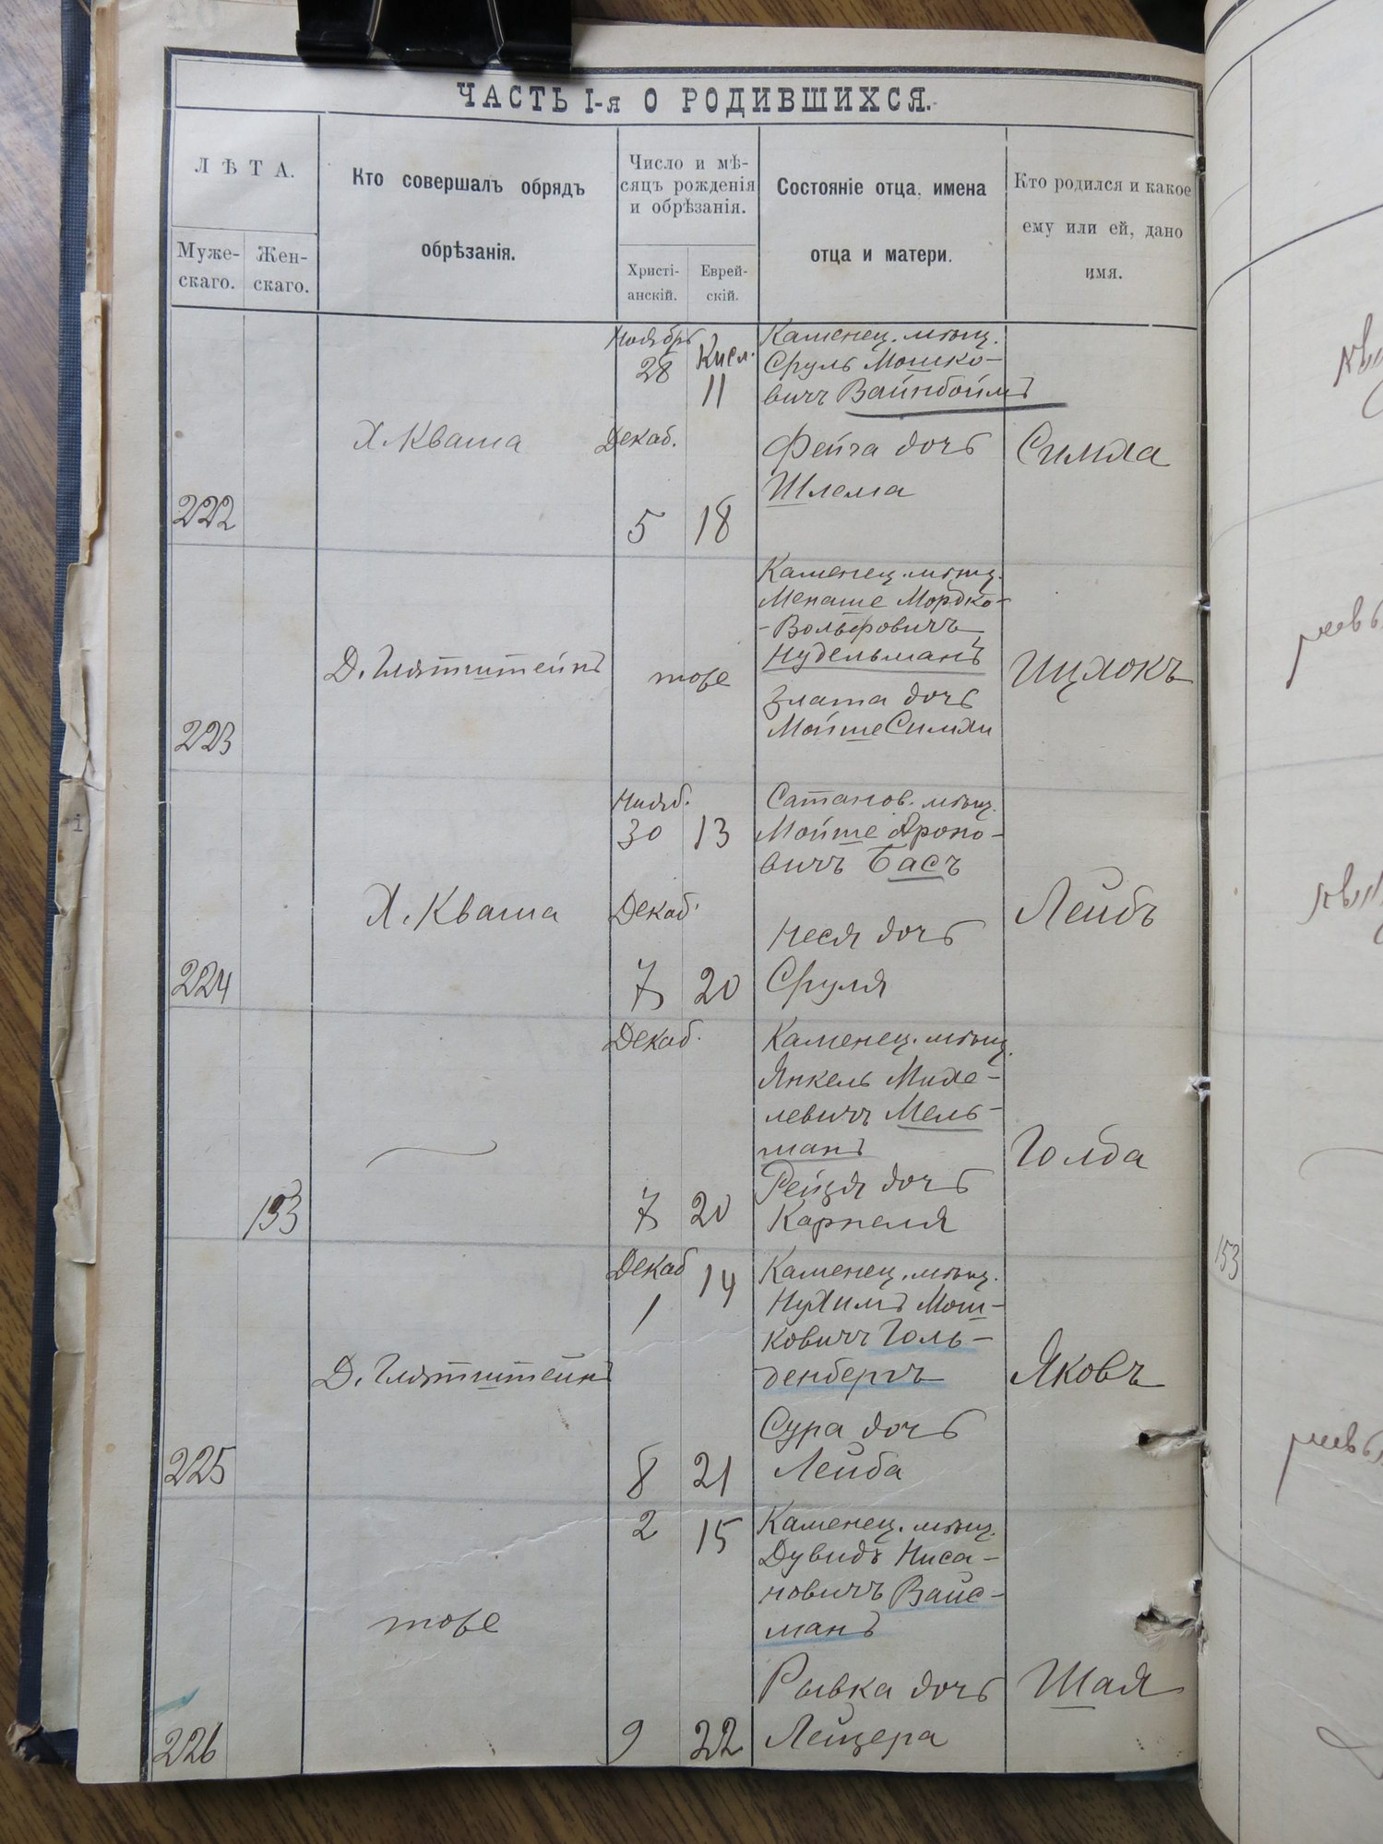 ЧАСТЬ I-я О РОДИВШИХСЯ.
ЛѢТА.
Муже-
скаго.
Жен-
скаго.
Кто совершалъ обрядъ
обрѣзанія.
Число и мѣ-
сяцъ рожденія
и обрѣзанія.
Христі-
анскій.
Еврей-
скій.
Состояніе отца, имена
отца и матери.
Кто родился и какое
ему или ей, дано
имя.
222
Х. Кваша
Ноябрь
28
Кисл.
11
Декаб.
5
18
Каменец. мѣщ.
Сруль Мошко-
вичъ Вайнбоймъ
Фейга дочь
Шлема
Симха
223
Д. Глятштейнъ
тоже
Каменец. мѣщ.
Менаше Мордко-
-Вольфовичъ
Нудельманъ
Злата дочь
Мойше Симхи
Ицхокъ
224
Х. Кваша
Нояб.
30
13
Декаб.
7
20
Сатанов. мѣщ.
Мойше Ароно-
вичъ Басъ
Неся дочь
Сруля
Лейбъ
153
Декаб.
7
20
Каменец. мѣщ.
Янкель Михе-
левичъ Мель-
манъ
Рейзя дочь
Карпеля
Голда
225
Д. Глятштейнъ
Декаб
1
14
8
21
Каменец. мѣщ.
Нухимъ Мош-
ковичъ Голь-
денбергъ
Сура дочь
Лейба
Яковъ
226
тоже
2
15
9
22
Каменец. мѣщ.
Дувидъ Ниса-
новичъ Вайс-
манъ
Рывка дочь
Лейзера
Шая
153